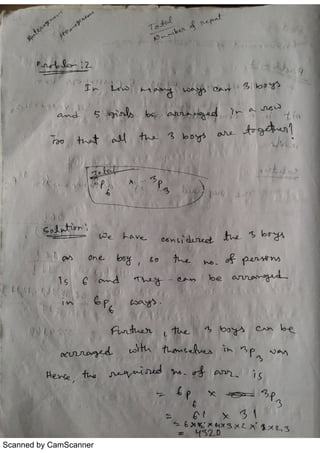 Total
Number of repeat
Problem:2
In how many ways can 3 boys
and 5 girls be arranged in a row
so that all the 3 boys are together?
Total
6P6 × 3P3
Solution:
We have considered the 3 boys
as one boy, so the no. of persons
is 6 and they can be arranged
in 6P6 ways.
Further, the 3 boys can be
arranged with themselves in 3P3 was
Hence, the required no. of arr. is
= 6P6 × 3P3
= 6! × 3!
= 6×5×4×3×2×1×3×2.3
= 4320
Scanned by CamScanner